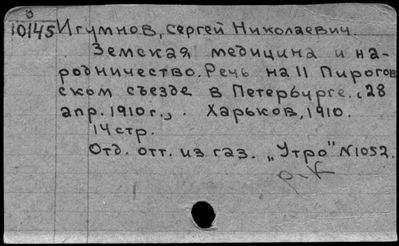 3
10145 Игумнов, Сергей Николаевич.
Земская медицина и на-
родничество. Речь на II Пирогов
ском съезде в Петербурге. 28
апр. 1910 г., . Харьков, 1910.
14 стр.
Отд. отт. из газ. „Утро" N1052.
р-к